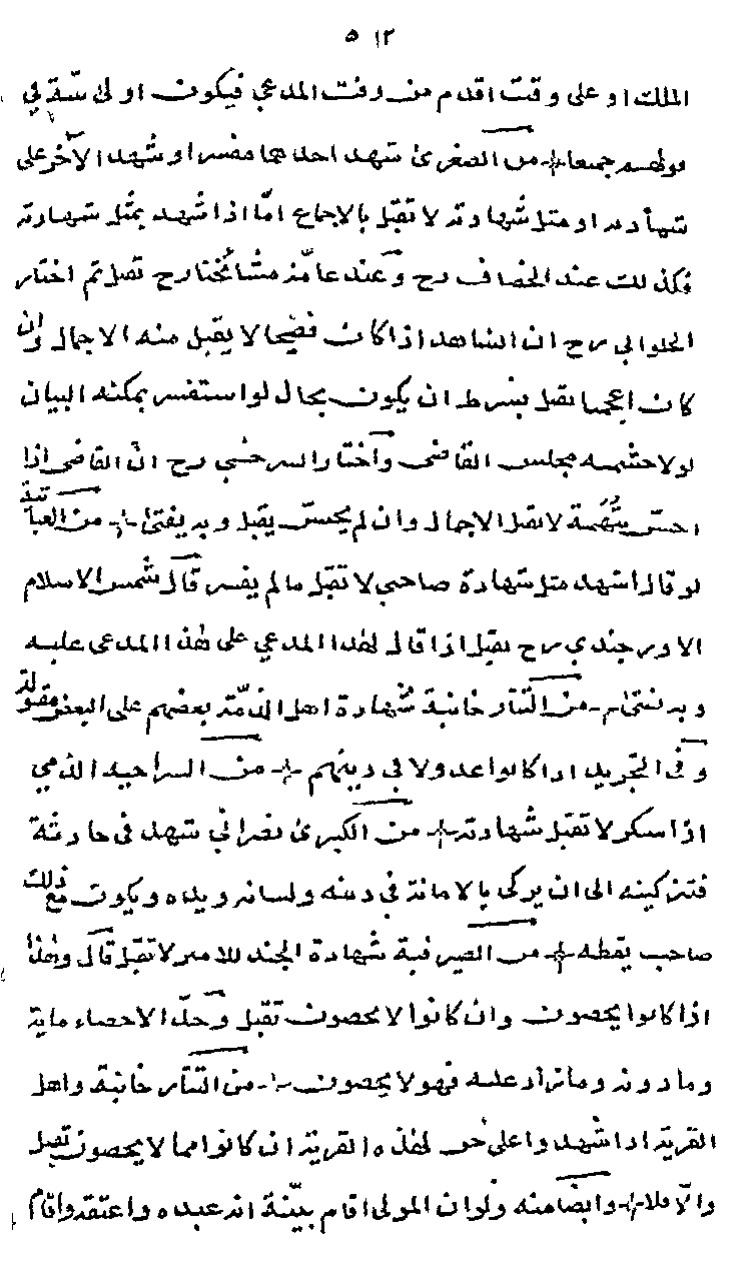 ٥١٢
الملك او على وقت اقدم من وقت المدعي فيكون اولى بينة في
قولهم جميعا من الصغرى شهد احدهما مفسرا وشهد الآخر على
شهادته او مثل شهادته لا تقبل بالاجماع امّا اذا شهد بمثل شهادته
فكذلك عند الخصاف رح وعند عامّة مشائخنا رح تقبل ثم اختار
الحلوائي رح ان الشاهد اذا كان فصيحا لا يقبل منه الاجمال وان
كان اعجميا تقبل بشرط ان يكون بحال لو استفسر يمكنه البيان
لولا حشمة مجلس القاضي واختار السرخسي رح انّ القاضي اذا
احسّ بتهمة لا تقبل الاجمال وان لم يحسّ يقبل وبه يفتى من العتابية
لو قال اشهد مثل شهادة صاحبي لا تقبل ما لم يفسر قال شمس الاسلام
الاوزجندي رح تقبل اذا قال لهذا المدعي على هذا المدعى عليه
وبه يفتى من التتارخانية شهادة اهل الذمّة بعضهم على البعض مقبولة
وفى التجريد اذا كانوا عدولا في دينهم من السراجية الذمي
اذا سكر لا تقبل شهادته من الكبرى نصراني شهد في حادثة
فتزكيته الى ان يزكى بالامانة في دينه ولسانه ويده ويكون مع ذلك
صاحب يقظة من الصيرفية شهادة الجند للامير لا تقبل قال وهذا
اذا كانوا يحصون وان كانوا لا يحصون تقبل وحدّ الاحصاء ماية
وما دونه وما زاد عليه فهو لا يحصون من التتارخانية واهل
القرية اذا شهدوا على حق لهذه القرية ان كانوا مما لا يحصون تقبل
والّا فلا وايضا منه ولو ان المولى اقام بيّنة انه عبده واعتقه واقام